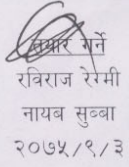 तयार गर्ने
रविराज रेग्मी
नायब सुब्बा
२०७५/९/३